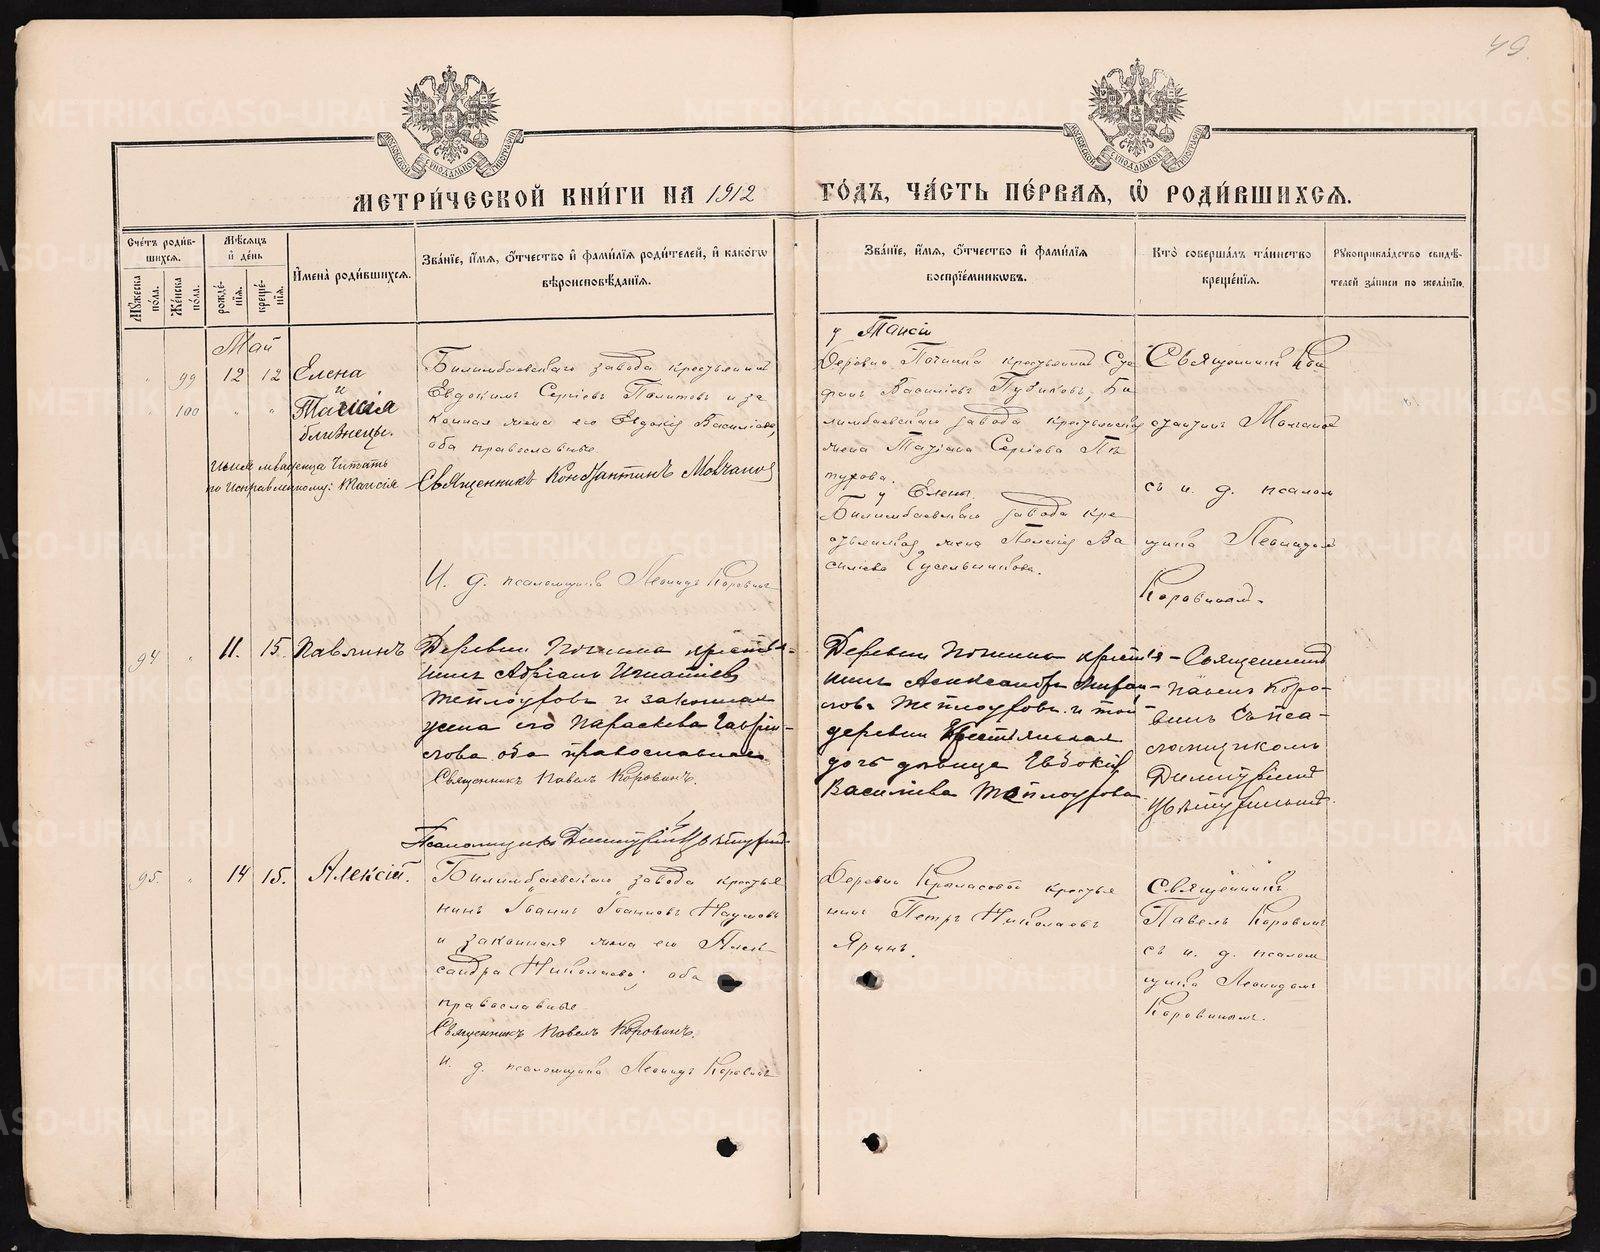 49.
МЕТРИ́ЧЕСКОЙ КНИ́ГИ НА 1912
ГО́ДЪ, ЧА́СТЬ ПЕ́РВАЯ, Ѽ РОДИ́ВШИХСЯ.
Сче́тъ роди́в-
шихся.
Мꙋ́жеска по́ла.
Же́нска по́ла.
Мѣ́сяцъ и҆ де́нь
рожде́-
нїя.
креще́-
нїя.
И҆мена̀ роди́вшихся.
Зва́нїе, и҆́мя, ѻ҆́тчество и҆ фами́лїя роди́телей, и҆ како́гѡ
вѣроисповѣ́данїя.
Зва́нїе, и҆́мя, ѻ҆́тчество и҆ фами́лїя
воспрїе́мникѡвъ.
Кто̀ соверша́лъ та́инство
креще́нїя.
Рꙋкоприкла́дство свидѣ́-
телей за́писи по жела́нїю.
Май
99 12 12 Елена
и
100 " " Таисія
близнецы.
младенца читать
по исправленному: Таисія
Билимбаевскаго завода крестьянинъ
Евдокимъ Сергіевъ и за
конная жена его Евдокія Василіева,
оба православные
Священникъ Константинъ Молчановъ
И. д. псаломщика Леонидъ Коровинъ
у Таисіи
Деревни Починка крестьянинъ Сте
фанъ Василіевъ Би
лимбаевскаго завода крестьянская
жена Татіана Сергіева Пѣ
тухова.
у Елены
Билимбаевскаго завода кре
стьянская жена Ва
силіева Сусельникова.
Священникъ Кон
стантинъ Молчанов
съ и. д. псалом
щика Леонидом
Коровиным.
94 " 11. 15. Павлинъ
Деревни Починка крестья-
нинъ Адріанъ Игнатіевъ
Теплоуховъ и законная
жена его Параскева Гаври-
лова оба православные
Священникъ Павелъ Коровинъ.
Псаломщикъ Димитрій
Деревни Починка крестья-
нинъ Александръ
Теплоуховъ и той
деревни крестьянская
дочь дѣвица Евдокія
Василіева Теплоухова
Священникъ
Павелъ Коро-
винъ съ пса-
ломщикомъ
Димитріемъ
95. " 14 15. Алексій.
Билимбаевскаго завода крестья
нинъ Іоаннъ Іоанновъ Наумовъ
и законная жена его Алек
сандра Николаева; оба
православные
Священникъ Павелъ Коровинъ.
И. д. псаломщика Леонидъ Коровинъ
Деревни Крыласовой крестья
нинъ Петръ Николаевъ
Яринъ.
Священникъ
Павелъ Коровинъ
съ и. д. псалом
щика Леонидомъ
Коровинымъ.
METRIKI.GASO-URAL.RU